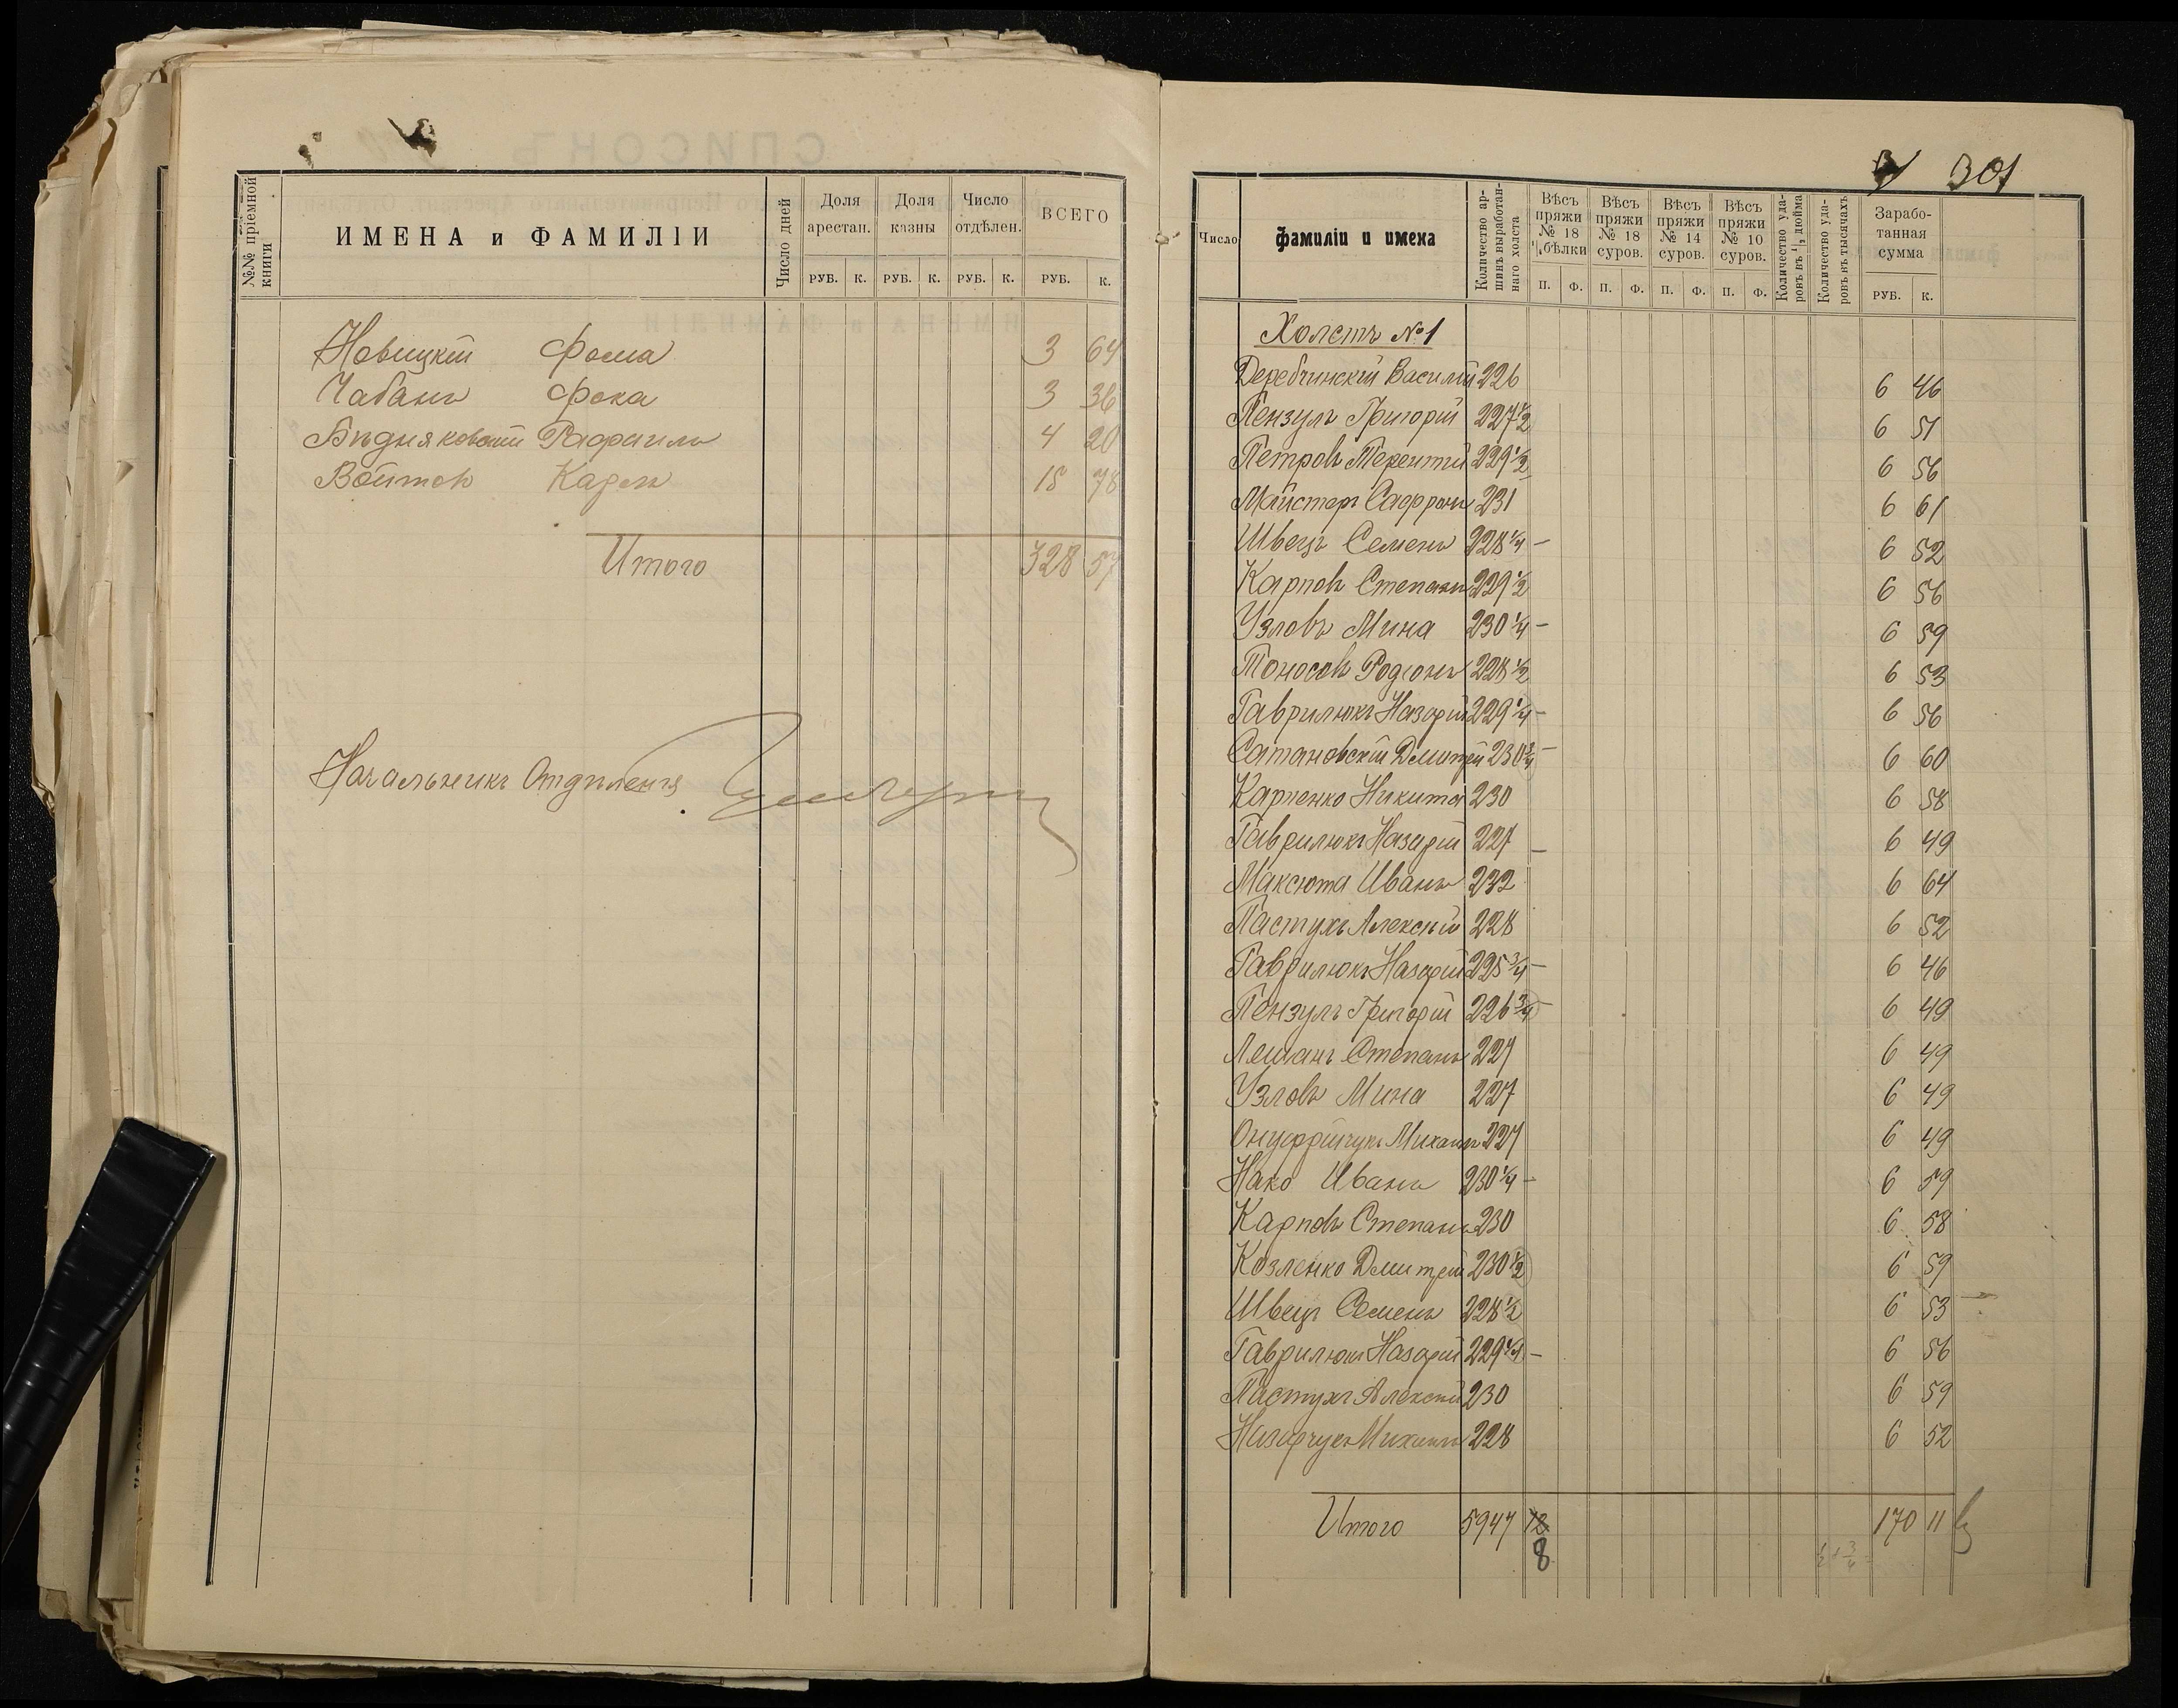 №№ пріемной книги
ИМЕНА и ФАМИЛІИ
Число дней
Доля арестан.
Доля казны
Число отдѣлен.
ВСЕГО
РУБ. К. РУБ. К. РУБ. К. РУБ. К.
Новицкій Фома 3 64
Чабанъ Фока 3 36
Бѣдняковскій Рафаилъ 4 20
Войтов Карлъ 15 78
Итого 328 57
Начальникъ Отдѣленія
301
Число
Фамиліи и имена
Количество аршинъ выработаннаго холста
Вѣсъ пряжи № 18 ¼ бѣлки
Вѣсъ пряжи № 18 суров.
Вѣсъ пряжи № 14 суров.
Вѣсъ пряжи № 10 суров.
Количество ударовъ въ ½ дюйма
Количество ударовъ въ тысячахъ
Заработанная сумма
П. Ф. П. Ф. П. Ф. П. Ф. РУБ. К.
Холстъ №1
Деребчинскій Василій 226 6 46
Пензулъ Григорій 227½ 6 51
Петровъ Терентій 229½ 6 56
Майстеръ Сафронъ 231 6 61
Швецъ Семенъ 228¼ – 6 52
Карповъ Степанъ 229½ 6 56
Узловъ Мина 230¼ – 6 59
Тоносовъ Родіонъ 228½ 6 53
Гаврилюкъ Назарій 229¼ – 6 56
Сатановскій Дмитрій 230¾ – 6 60
Карпенко Никита 230 6 58
Гаврилюкъ Назарій 227 – 6 49
Максюта Иванъ 232 6 64
Пастухъ Алексѣй 228 6 52
Гаврилюкъ Назарій 225¾ – 6 46
Пензулъ Григорій 226¾ – 6 49
Лешанъ Степанъ 227 6 49
Узловъ Мина 227 6 49
Онуфрійчукъ Михаилъ 227 6 49
Нако Иванъ 230¼ – 6 59
Карповъ Степанъ 230 6 58
Козленко Дмитрій 230½ 6 59
Швецъ Семенъ 228½ 6 53
Гаврилюкъ Назарій 229¼ – 6 56
Пастухъ Алексѣй 230 6 59
Назарчукъ Михаилъ 228 6 52
Итого 5947 170 11
8
½ + ¾